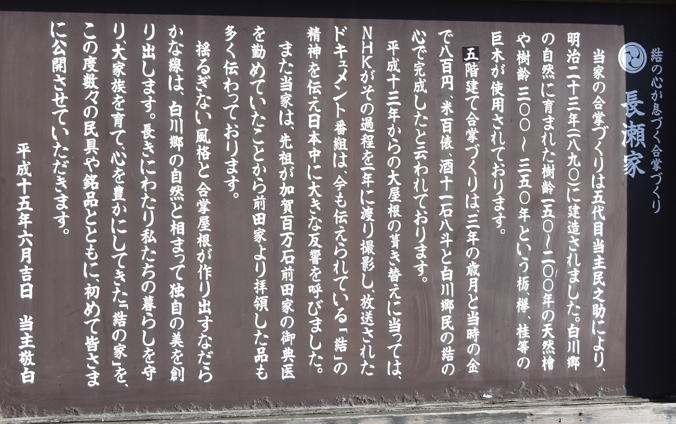 結の心が息づく合掌づくり
長瀬家
当家の合掌づくりは五代目当主民之助により、
明治二十三年(一八九〇)に建造されました。白川郷
の自然に育まれた樹齢一五〇~二〇〇年の天然檜
や樹齢三〇〇~三五〇年という栃、欅、桂等の
巨木が使用されております。
五階建て合掌づくりは三年の歳月と当時の金
で八百円、米百俵、酒十一石八斗と白川郷民の結の
心で完成したと云われております。
平成十三年からの大屋根の葺き替えに当っては、
NHKがその過程を一年に渡り撮影し、放送された
ドキュメント番組は、今も伝えられている「結」の
精神を伝え日本中に大きな反響を呼びました。
また当家は、先祖が加賀百万石前田家の御典医
を勤めていたことから前田家より拝領した品も
多く伝わっております。
揺るぎない風格と合掌屋根が作り出すなだら
かな線は、白川郷の自然と相まって独自の美を創
り出します。長きにわたり私たちの暮らしを守
り、大家族を育て、心を豊かにしてきた「結の家」を、
この度数々の民具や銘品とともに、初めて皆さま
に公開させていただきます。
平成十五年六月吉日 当主敬白